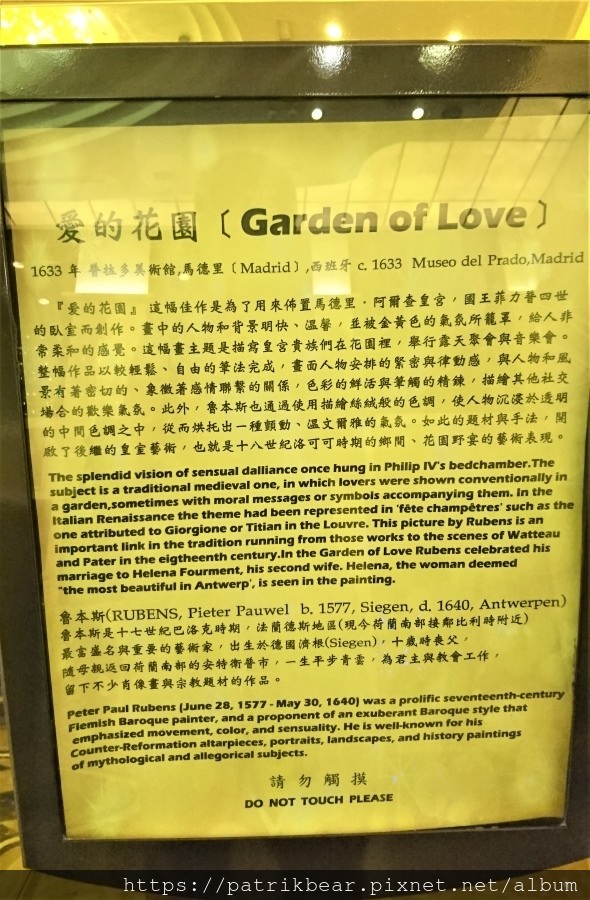 愛的花園〔Garden of Love〕
1633 年 普拉多美術館,馬德里〔Madrid〕,西班牙 c. 1633 Museo del Prado,Madrid
『愛的花園』這幅佳作是為了用來佈置馬德里．阿爾查皇宮，國王菲力普四世
的臥室而創作。畫中的人物和背景明快、溫馨，並被金黃色的氣氛所籠罩，給人非
常柔和的感覺。這幅畫主題是描寫皇宮貴族們在花園裡，舉行露天聚會與音樂會。
整幅作品以較輕鬆、自由的筆法完成，畫面人物安排的緊密與律動感，與人物和風
景有著密切的、象徵著感情聯繫的關係，色彩的鮮活與筆觸的精鍊，描繪其他社交
場合的歡樂氣氛。此外，魯本斯也通過使用描繪絲絨般的色調，使人物沉浸於透明
的中間色調之中，從而烘托出一種顫動、溫文爾雅的氣氛。如此的題材與手法，開
啟了後繼的皇室藝術，也就是十八世紀洛可可時期的鄉間、花園野宴的藝術表現。
The splendid vision of sensual dalliance once hung in Philip IV's bedchamber.The
subject is a traditional medieval one, in which lovers were shown conventionally in
a garden,sometimes with moral messages or symbols accompanying them. In the
Italian Renaissance the theme had been represented in 'fête champêtres' such as the
one attributed to Giorgione or Titian in the Louvre. This picture by Rubens is an
important link in the tradition running from those works to the scenes of Watteau
and Pater in the eigtheenth century.In the Garden of Love Rubens celebrated his
marriage to Helena Fourment, his second wife. Helena, the woman deemed
"the most beautiful in Antwerp', is seen in the painting.
魯本斯(RUBENS, Pieter Pauwel b. 1577, Siegen, d. 1640, Antwerpen)
魯本斯是十七世紀巴洛克時期，法蘭德斯地區(現今荷蘭南部接鄰比利時附近)
最富盛名與重要的藝術家，出生於德國濟根(Siegen)，十歲時喪父，
隨母親返回荷蘭南部的安特衛普市，一生平步青雲，為君主與教會工作，
留下不少肖像畫與宗教題材的作品。
Peter Paul Rubens (June 28, 1577 - May 30, 1640) was a prolific seventeenth-century
Flemish Baroque painter, and a proponent of an exuberant Baroque style that
emphasized movement, color, and sensuality. He is well-known for his
Counter-Reformation altarpieces, portraits, landscapes, and history paintings
of mythological and allegorical subjects.
請勿觸摸
DO NOT TOUCH PLEASE
https://patrikbear.pixnet.net/album